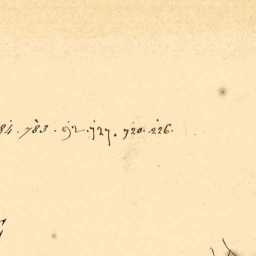 84 . 783 . 92 . 727 . 720 . 226 .